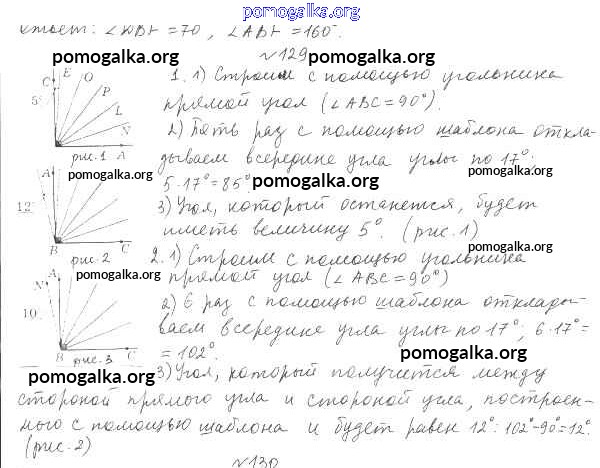 pomogalka.org
Ответ: ∠КВF = 70, ∠АВF = 160°.
№129
pomogalka.org pomogalka.org
1. 1) Строим с помощью угольника
прямой угол (∠ABC = 90°).
2) Пять раз с помощью шаблона откла-
дываем всередине угла углы по 17°;
5·17° = 85°
3) Угол, который останется, будет
иметь величину 5°. (рис. 1)
C E O P L N
5°
B A
рис. 1
pomogalka.org
pomogalka.org
pomogalka.org
A
12
B C
рис. 2
pomogalka.org
pomogalka.org
2. 1) Строим с помощью угольника
прямой угол (∠ABC = 90°)
2) 6 раз с помощью шаблона отклады-
ваем всередине угла углы по 17°; 6·17° =
= 102°.
N A
10
B C
рис. 3
pomogalka.org
pomogalka.org
pomogalka.org
3) Угол, который получится между
стороной прямого угла и стороной угла, построен-
ного с помощью шаблона и будет равен 12°: 102°-90°=12°.
(рис. 2)
pomogalka.org
pomogalka.org
№130